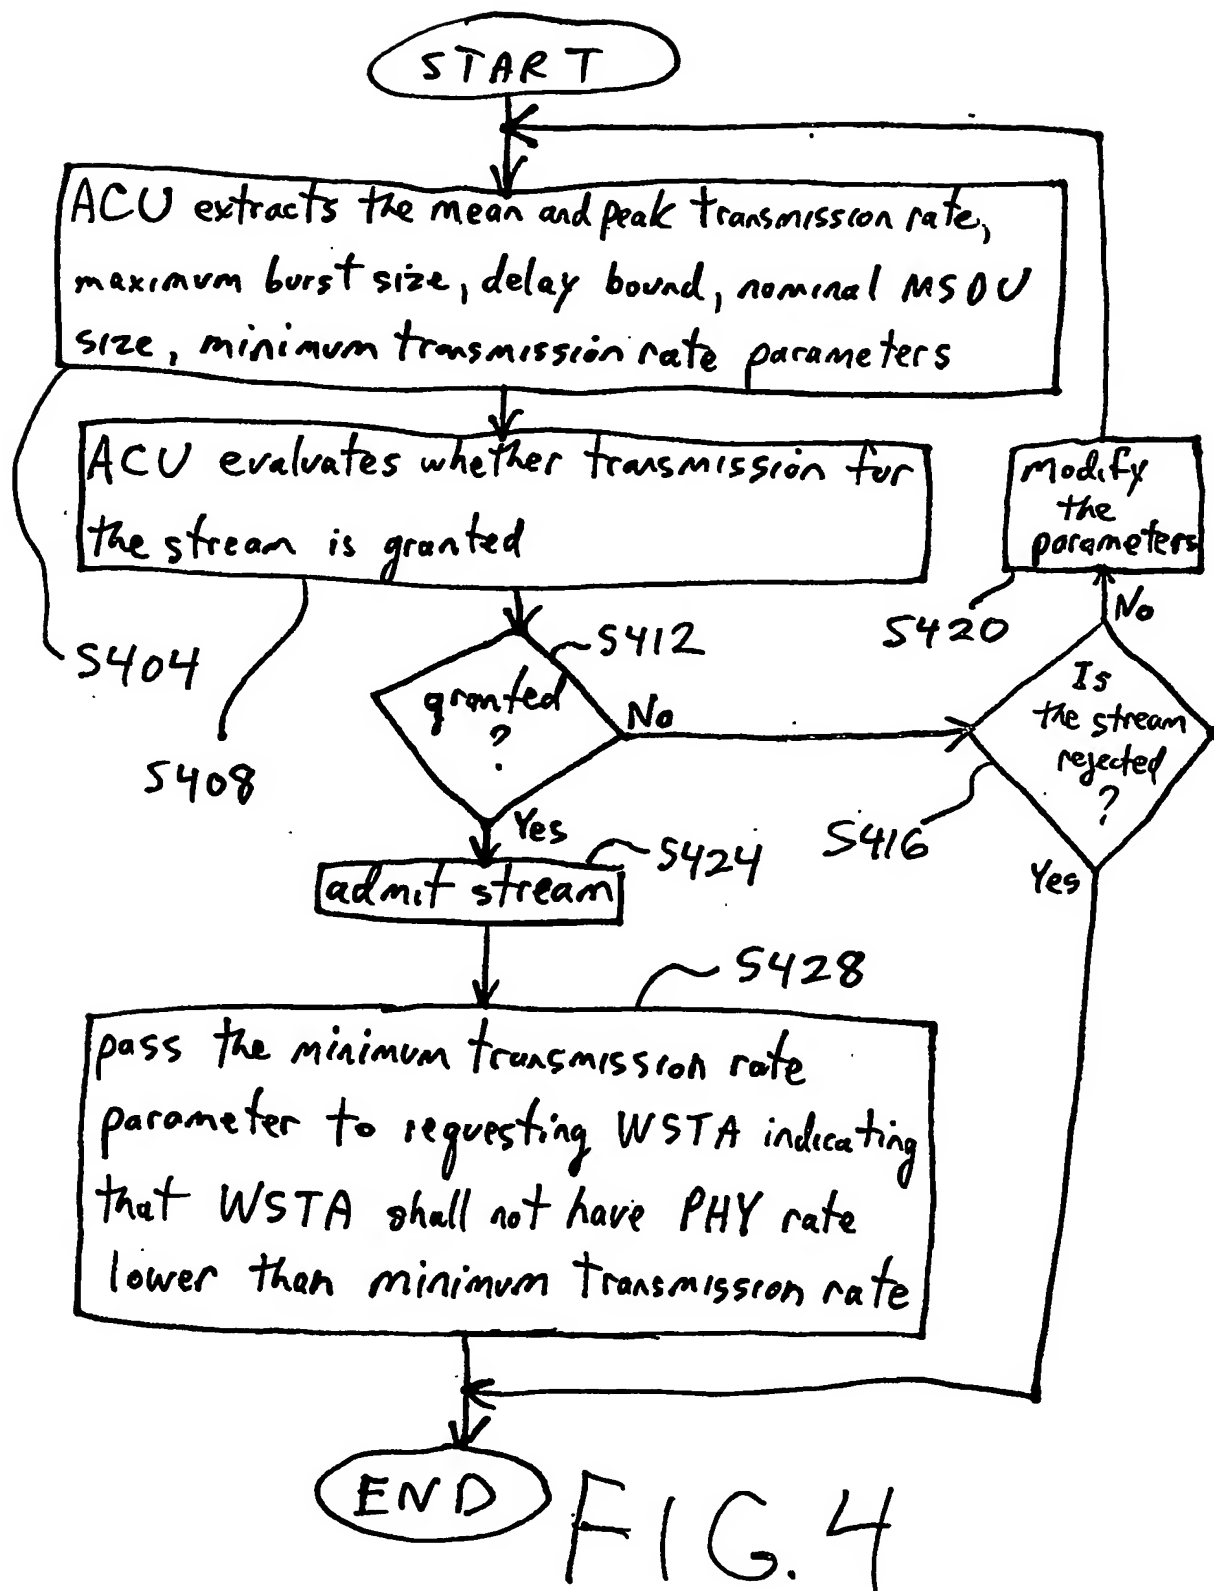 START
ACU extracts the mean and peak transmission rate,
maximum burst size, delay bound, nominal MSDU
size, minimum transmission rate parameters
ACU evaluates whether transmission for
the stream is granted
modify
the
parameters
No
S420
S412
S404
granted
?
No
Is
the stream
rejected
?
S408
Yes
S416
S424
Yes
admit stream
S428
pass the minimum transmission rate
parameter to requesting WSTA indicating
that WSTA shall not have PHY rate
lower than minimum transmission rate
END
FIG. 4